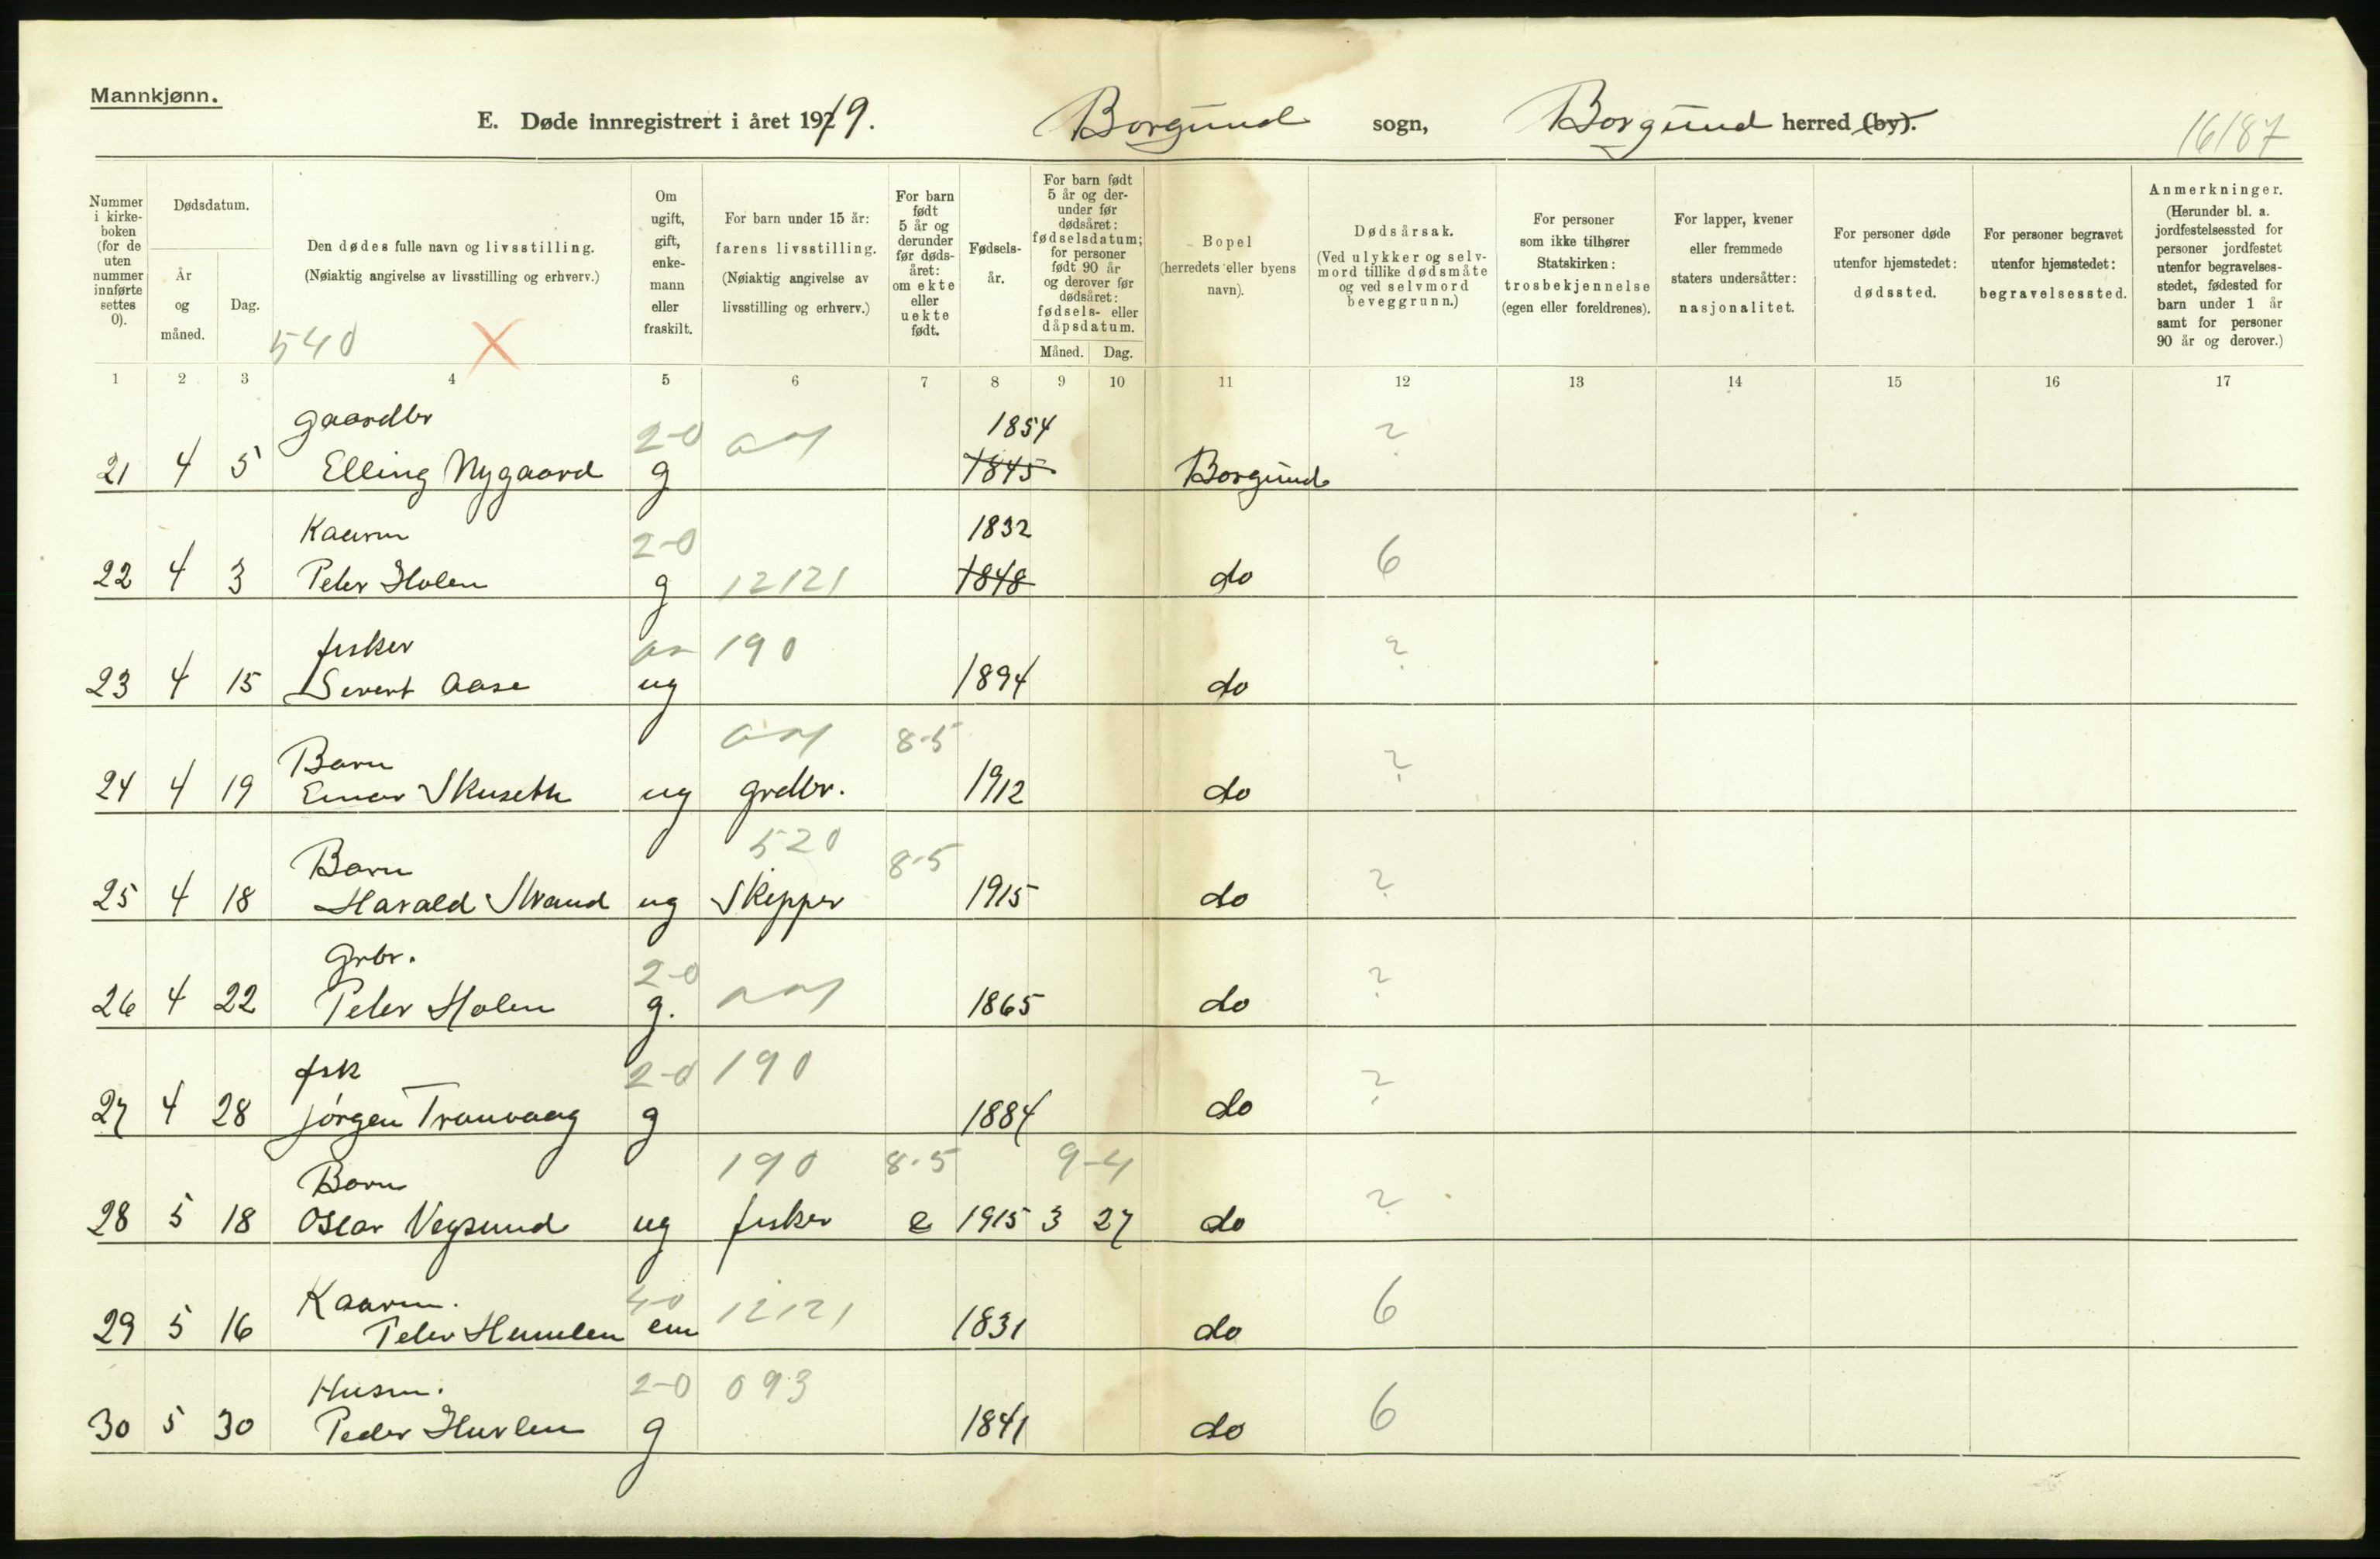 Mannkjønn.
E. Døde innregistrert i året 1919. Borgund sogn, Borgund herred (by).
16187
Nummer i kirke-boken (for de uten nummer innførte settes 0).
Dødsdatum.
År og måned.
Dag.
Den dødes fulle navn og livsstilling.
(Nøiaktig angivelse av livsstilling og erhverv.)
540 X
Om ugift, gift, enke-mann eller fraskilt.
For barn under 15 år: farens livsstilling.
(Nøiaktig angivelse av livsstilling og erhverv.)
For barn født 5 år og derunder før døds-året: om ekte eller uekte født.
Fødsels-år.
For barn født 5 år og der-under før dødsåret: fødselsdatum; for personer født 90 år og derover før dødsåret: fødsels- eller dåpsdatum.
Måned. Dag.
Bopel
(herredets eller byens navn).
Dødsårsak.
(Ved ulykker og selv-mord tillike dødsmåte og ved selvmord beveggrunn.)
For personer som ikke tilhører Statskirken: trosbekjennelse (egen eller foreldrenes).
For lapper, kvener eller fremmede staters undersåtter: nasjonalitet.
For personer døde utenfor hjemstedet: dødssted.
For personer begravet utenfor hjemstedet: begravelsessted.
Anmerkninger.
(Herunder bl. a. jordfestelsessted for personer jordfestet utenfor begravelses-stedet, fødested for barn under 1 år samt for personer 90 år og derover.)
1 2 3 4 5 6 7 8 9 10 11 12 13 14 15 16 17
gaardbr 2-0 1854 ?
21 4 5 Elling Nygaard g 1845 Borgund
Kaarm 2-0 1832
22 4 3 Peter Holen g 12121 1848 do 6
fisker 190 ?
23 4 15 Sivert Aase ug 1894 do
Barn 8-5 ?
24 4 19 Einar Skuseth ug grdbr. 1912 do
Barn 520 8-5 ?
25 4 18 Harald Strand ug Skipper 1915 do
Grbr. 2-0 ?
26 4 22 Peter Holen g. 1865 do
fsk 2-0 190 ?
27 4 28 Jörgen Tranvaag g 1884 do
Barn 190 8-5 9-4 ?
28 5 18 Oscar Vegsund ug fisker e 1915 3 27 do
Kaarm. 4-0 12121 6
29 5 16 Peter Humlen em 1831 do
Husm. 2-0 093 6
30 5 30 Peder Hurlen g 1841 do